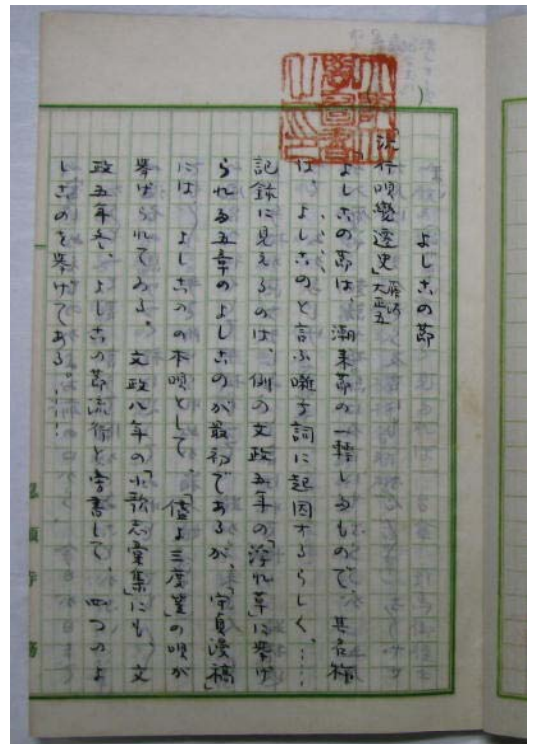 よしこの節
「流行唄變遷史」藤沢 大正五
「よしこの節は、潮来節の一轉したもので、其名稱
は、よしこのと言ふ囃子詞に起因するらしく、……
記録に見えるのは、例の文政五年の「浮れ草」に挙げ
られる五章のよしこのが最初であるが、「守貞漫稿」
には、よしこのの本唄として、「三度笠」の唄が
挙げられてゐる。文政八年の「小歌志彙集」にも、文
政五年冬、よしこの節流行と傍書して、四つのよ
しこのを挙げてある……
忍頂寺務